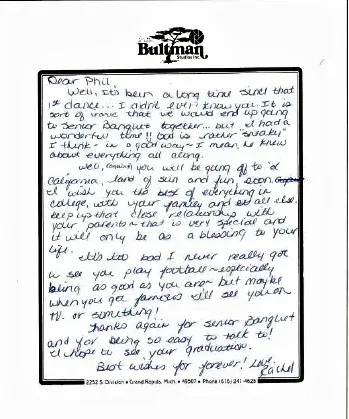 Bultman
Studios Inc.
Dear Phil,
Well, it's been a long time since that
1st dance... I didn't even know you. It is
sort of ironic that we would end up going
to Senior Banquet together... but I had a
wonderful time!! God is rather "sneaky"
I think - in a good way - I mean, he knew
about everything all along.
Well, you will be going off to
California, land of sun and fun, soon
I wish you the best of everything in
college, with your family and all else.
Keep up that close relationship with
your parents - that is very special and
it will only be as a blessing to your
life.
It's too bad I never really got
to see you play football - especially
being as good as you are - but maybe
when you get famous I'll see you on
T.V. or something!
Thanks again for Senior Banquet
and for being so easy to talk to!
I hope to see your graduation.
Best wishes for forever! Love,
Rachel
2252 S. Division • Grand Rapids, Mich. • 49507 • Phone (616) 241-4628